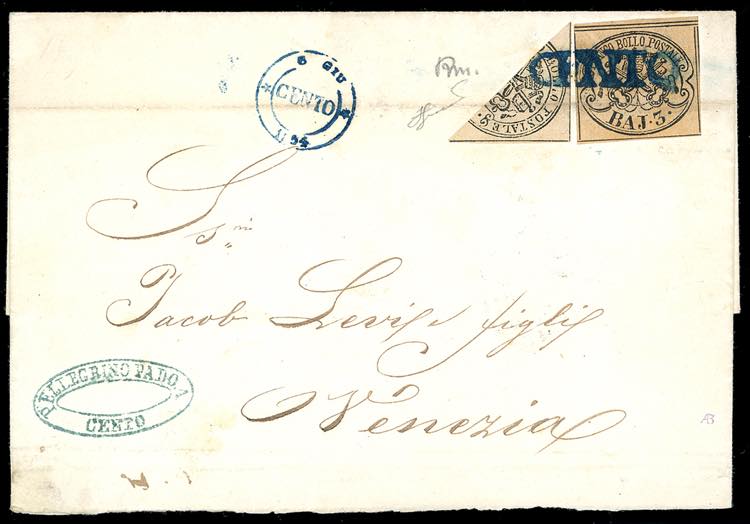 6 GIU
CENTO
54
CENTO
BOLLO POSTALE
BAJ. 3.
S
Ssri
Jacob Levi e figli
Venezia
PELLEGRINO PADOA
CENTO
AB